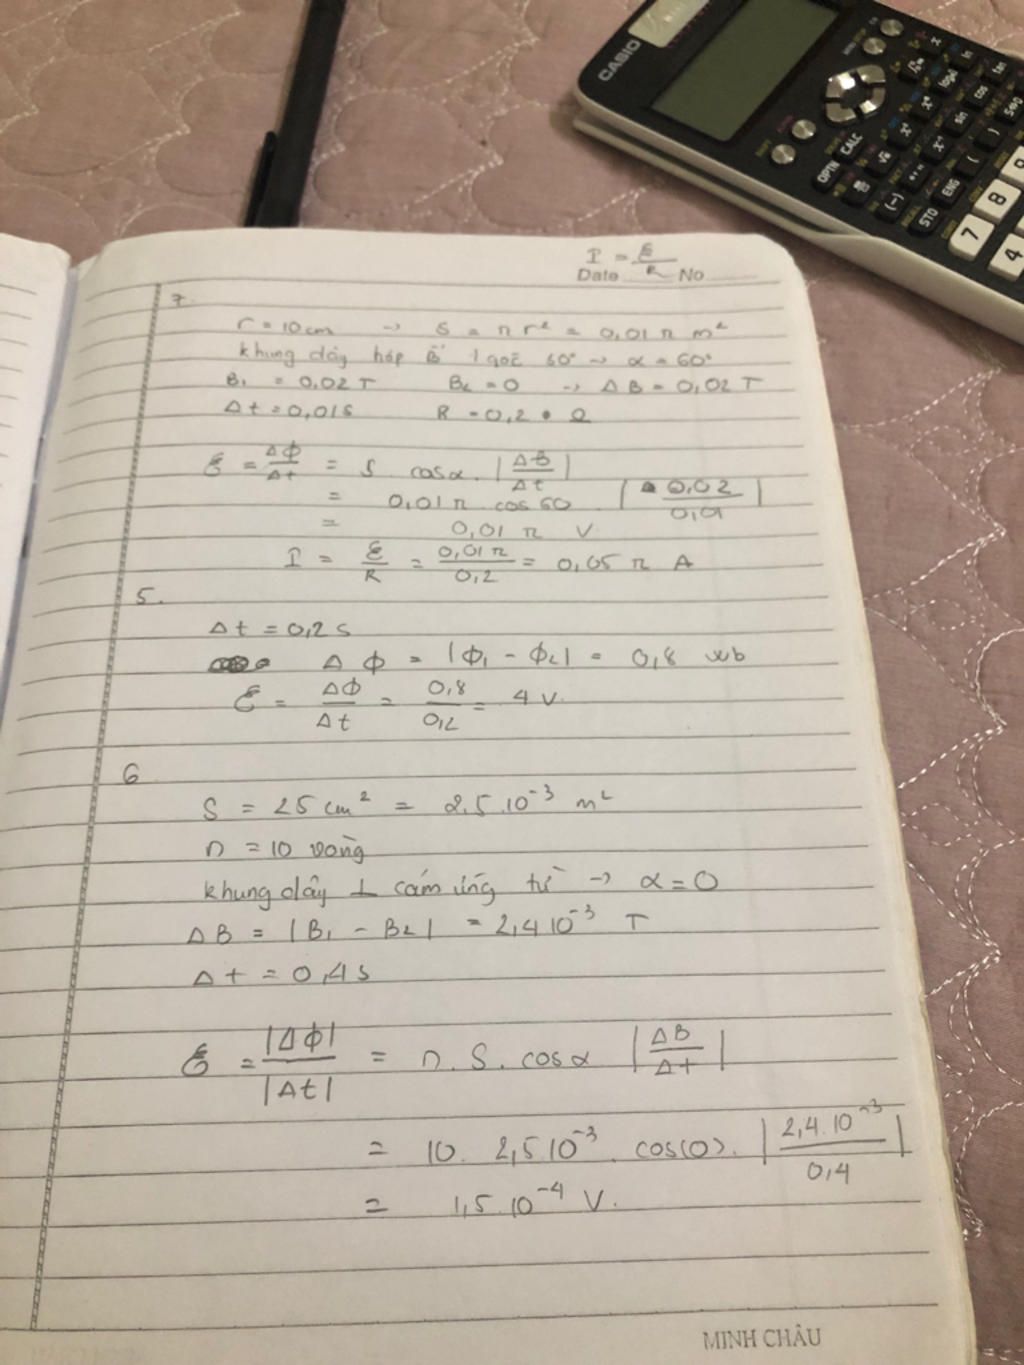 CASIO
OPTN CALC
STO ENG
(-)
sin
cos
tan
7 8
4
I = ℰ/R
Date No
7.
r = 10cm → S = π r² = 0,01 π m²
khung dây hợp B 1 góc 60° → α = 60°
B₁ = 0,02 T B₂ = 0 → Δ B = 0,02 T
Δt = 0,01s R = 0,2 Ω
ℰ = ΔΦ/Δt = S cosα . |ΔB/Δt|
= 0,01 π cos 60 |0,02/0,01|
= 0,01 π V.
I = ℰ/R = 0,01 π/0,2 = 0,05 π A
5.
Δt = 0,2 s
Δ Φ = |Φ₁ - Φ₂| = 0,8 wb
ℰ = ΔΦ/Δt = 0,8/0,2 = 4 V.
6
S = 25 cm² = 2,5.10⁻³ m²
n = 10 vòng
khung dây ⊥ cảm ứng từ → α = 0
ΔB = |B₁ - B₂| = 2,4 10⁻³ T
Δt = 0,4s
ℰ = |ΔΦ|/|Δt| = n. S. cosα |ΔB/Δt|
= 10. 2,5 10⁻³ . cos(0). |2,4.10⁻³/0,4|
= 1,5.10⁻⁴ V.
MINH CHÂU